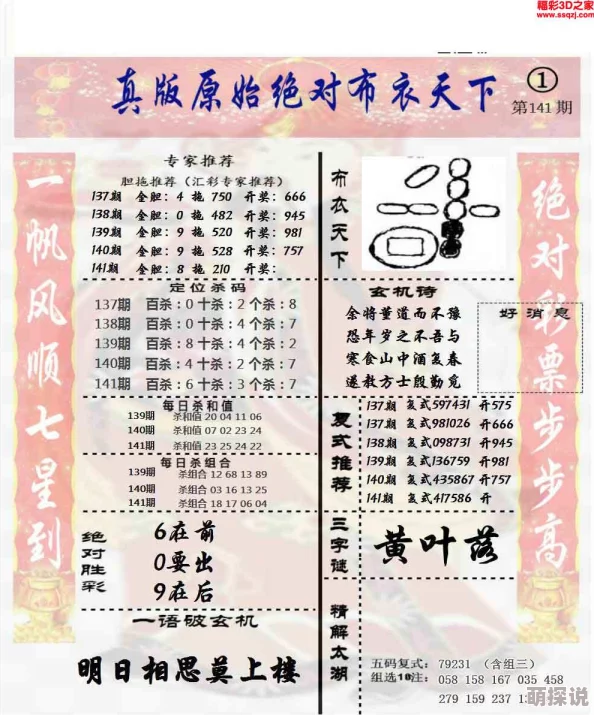 福彩3D之家
www.ssqzj.com
真版原始绝对布衣天下
①
第141期
一帆风顺七星到
绝对彩票步步高
专家推荐
胆拖推荐（汇彩专家推荐）
137期 金胆：4 拖 750 开奖：666
138期 金胆：0 拖 482 开奖：945
139期 金胆：9 拖 520 开奖：981
140期 金胆：9 拖 528 开奖：757
141期 金胆：8 拖 210 开奖：
定位杀码
137期 百杀：0 十杀：2 个杀：8
138期 百杀：0 十杀：4 个杀：7
139期 百杀：8 十杀：4 个杀：2
140期 百杀：4 十杀：2 个杀：7
141期 百杀：6 十杀：3 个杀：7
每日杀和值
139期 杀和值 20 04 11 06
140期 杀和值 07 02 23 24
141期 杀和值 23 25 24 22
每日杀组合
139期 杀组合 12 68 13 89
140期 杀组合 03 16 13 25
141期 杀组合 18 17 06 04
绝对胜彩
6在前
0要出
9在后
一语破玄机
明日相思莫上楼
布衣天下
玄机诗
余将董道而不豫
恐年岁之不吾与
寒食山中酒复春
遂教方士殷勤觅
好消息
复式推荐
137期 复式597431 开575
137期 复式981026 开666
138期 复式098731 开945
139期 复式136759 开981
140期 复式435867 开757
141期 复式417586 开
三字谜
黄叶落
精解太湖
五码复式： 79231 （含组三）
组选10注： 058 158 167 035 458
279 159 237 1
萌探说